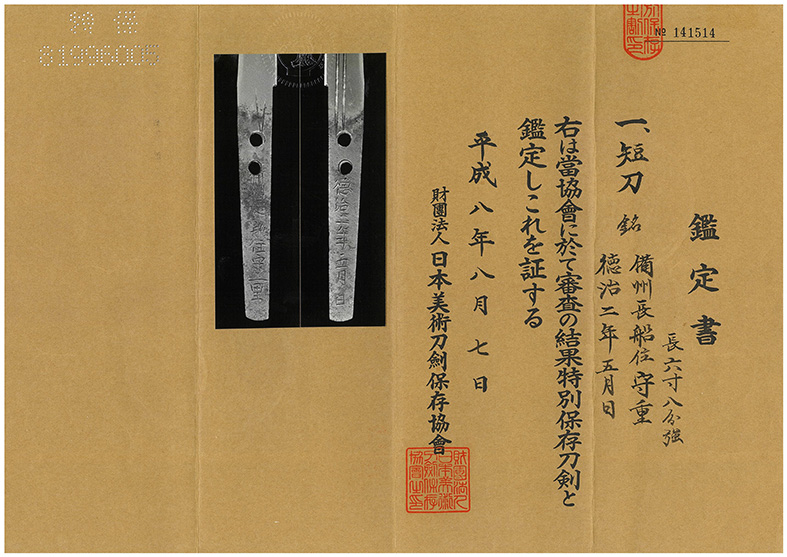 鑑定書
一、短刀 銘 備州長船住守重
徳治二年五月日
長六寸八分強
右は當協會に於て審査の結果特別保存刀剣と
鑑定しこれを証する
平成八年八月七日
財團法人 日本美術刀劍保存協會
№ 141514
特 保
61996005
徳治二年五月日